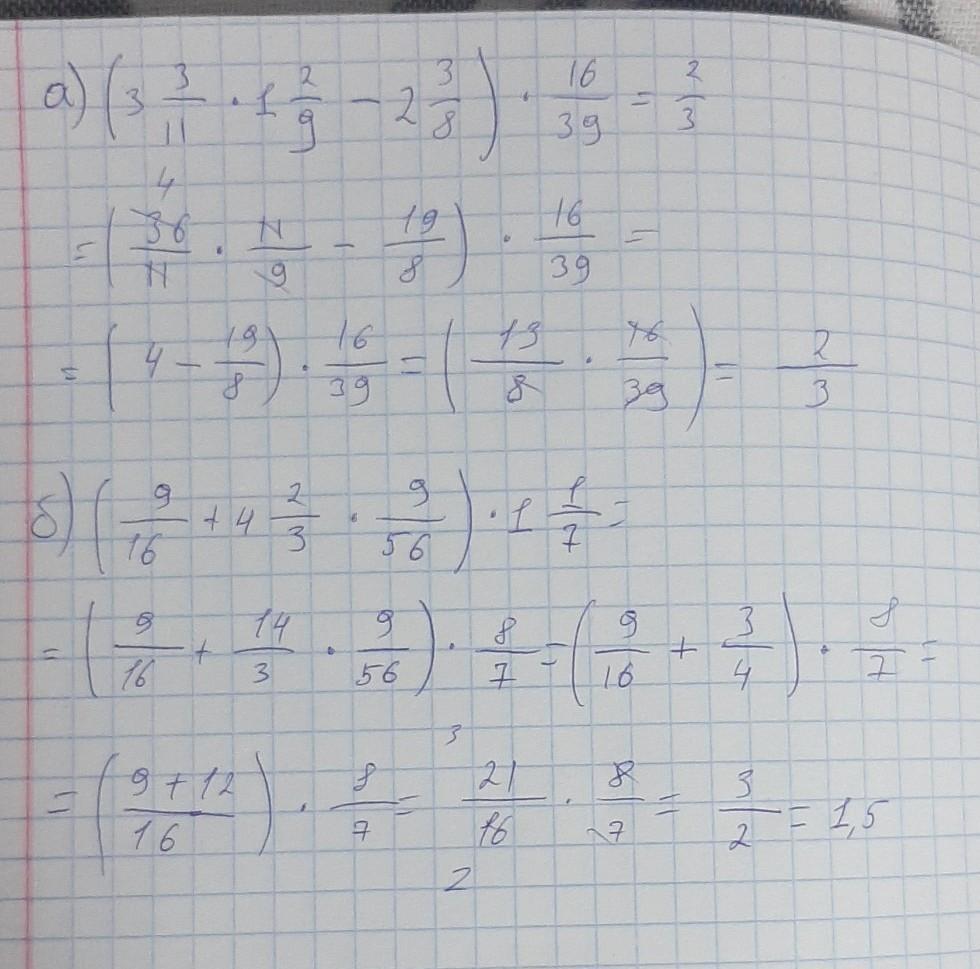 а) (3 3/11 · 1 2/9 − 2 3/8) · 16/39 = 2/3
4
= (36/11 · 11/9 − 19/8) · 16/39 =
= (4 − 19/8) · 16/39 = (13/8 · 16/39) = 2/3
б) (9/16 + 4 2/3 · 9/56) · 1 1/7 =
= (9/16 + 14/3 · 9/56) · 8/7 = (9/16 + 3/4) · 8/7 =
3
= (9 + 12/16) · 8/7 = 21/16 · 8/7 = 3/2 = 1,5
2